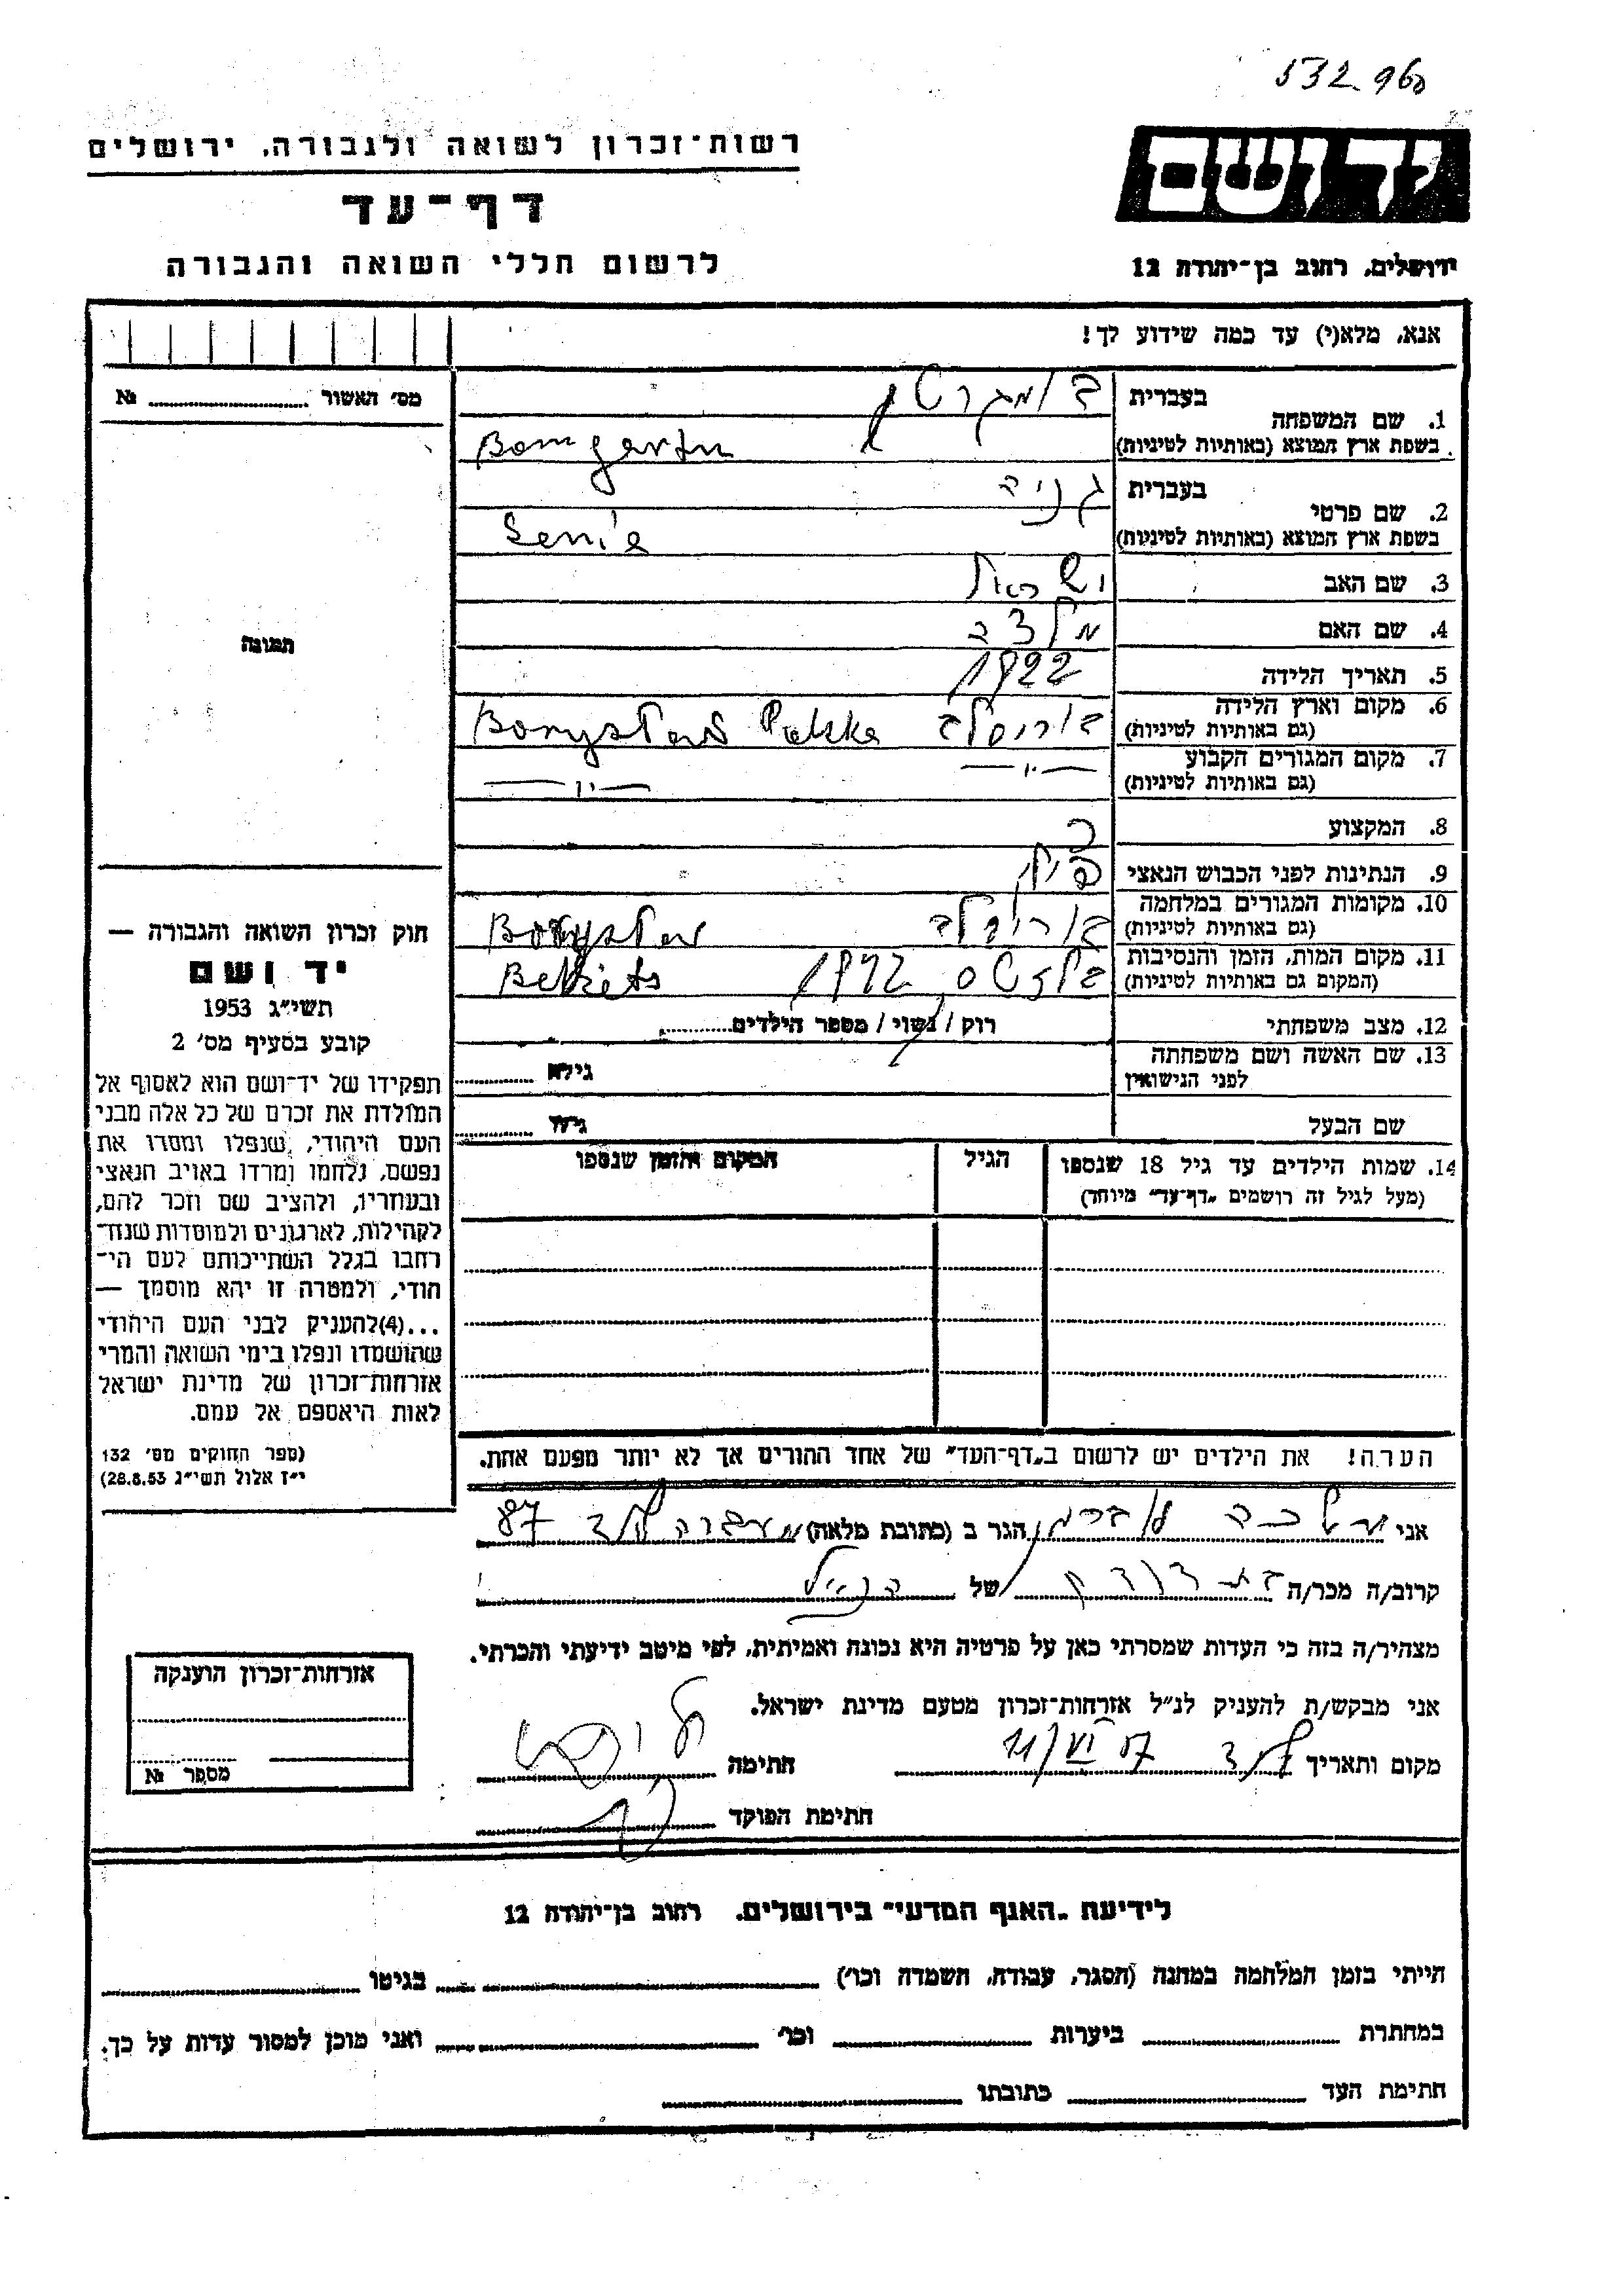 532960
יד ושם
רשות־זכרון לשואה ולגבורה, ירושלים
דף־עד
לרשום חללי השואה והגבורה
ירושלים, רחוב בן־יהודה 12
אנא, מלא(י) עד כמה שידוע לך!
מס' האשור № 
בעברית בומגרטן
1. שם המשפחה
בשפת ארץ המוצא (באותיות לטיניות) Bomgartn
בעברית גניה
2. שם פרטי
בשפת ארץ המוצא (באותיות לטיניות) Genia
3. שם האב ישראל
4. שם האם
תמונה
5. תאריך הלידה 1922
6. מקום וארץ הלידה
(גם באותיות לטיניות) בוריסלב Boryslaw Polska
7. מקום המגורים הקבוע
(גם באותיות לטיניות) —"— —"—
8. המקצוע
9. הנתינות לפני הכבוש הנאצי
10. מקומות המגורים במלחמה
(גם באותיות לטיניות) בוריסלב Boryslaw
11. מקום המות, הזמן והנסיבות
(המקום גם באותיות לטיניות) 1942
12. מצב משפחתי רוק / נשוי / מספר הילדים
13. שם האשה ושם משפחתה
לפני הנישואין גילה
שם הבעל גילו
14. שמות הילדים עד גיל 18 שנספו הגיל המקום והזמן שנספו
(מעל לגיל זה רושמים "דף־עד" מיוחד)
חוק זכרון השואה והגבורה —
יד ושם
תשי"ג 1953
קובע בסעיף מס' 2
תפקידו של יד־ושם הוא לאסוף אל
המולדת את זכרם של כל אלה מבני
העם היהודי, שנפלו ומסרו את
נפשם, נלחמו ומרדו באויב הנאצי
ובעוזריו, ולהציב שם וזכר להם,
לקהילות, לארגונים ולמוסדות שנח־
רחבו בגלל השתייכותם לעם הי־
הודי, ולמטרה זו יהא מוסמך —
...(4)להעניק לבני העם היהודי
שהושמדו ונפלו בימי השואה והמרי
אזרחות־זכרון של מדינת ישראל
לאות היאספם אל עמם.
(ספר החוקים מס' 132
י"ז אלול תשי"ג 28.8.53)
הערה! את הילדים יש לרשום ב"דף־העד" של אחד ההורים אך לא יותר מפעם אחת.
אני הגר ב (כתובת מלאה) מעברה לוד 87
קרוב/ה מכר/ה של הנ"ל
מצהיר/ה בזה כי העדות שמסרתי כאן על פרטיה היא נכונה ואמיתית, לפי מיטב ידיעתי והכרתי.
אני מבקש/ת להעניק לנ"ל אזרחות־זכרון מטעם מדינת ישראל.
מקום ותאריך לוד 11/VI 57 חתימה
חתימת הפוקד
אזרחות־זכרון הוענקה
מספר №
לידיעת "האגף המדעי" בירושלים, רחוב בן־יהודה 12
הייתי בזמן המלחמה במחנה (הסגר, עבודה, השמדה וכו') בגיטו
במחתרת ביערות וכו' ואני מוכן למסור עדות על כך.
חתימת העד כתובתו